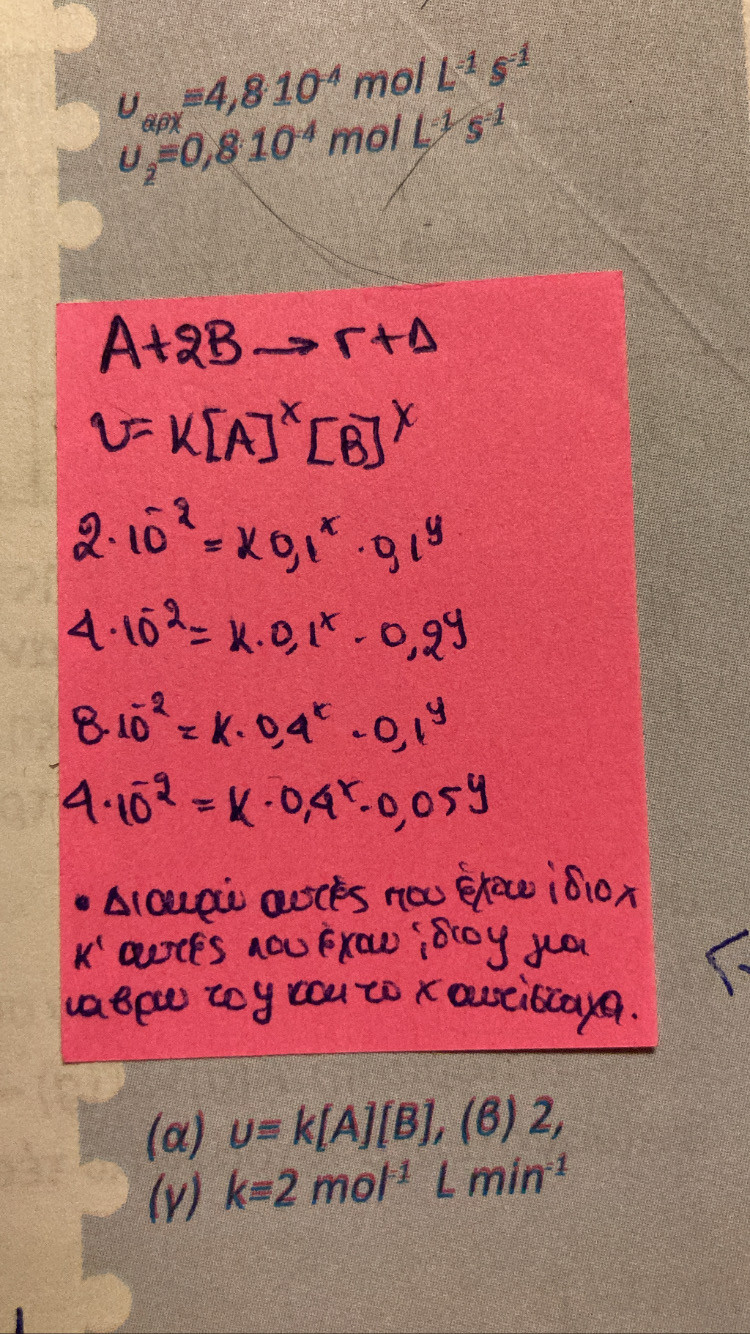 υαρχ=4,8 10-4 mol L-1 s-1
υ2=0,8 10-4 mol L-1 s-1
A+2B → Γ+Δ
υ= K[A]^x [B]^x
2·10^-2 = K 0,1^x · 0,1^y
4·10^-2 = K·0,1^x · 0,2^y
8·10^-2 = K·0,4^x · 0,1^y
4·10^-2 = K·0,4^x · 0,05^y
• Διαιρώ αυτές που έχουν ίδιο x
κ' αυτές που έχουν ίδιο y για
να βρω το y και το x αντίστοιχα.
(α) υ= k[A][B], (β) 2,
(γ) k=2 mol-1 L min-1